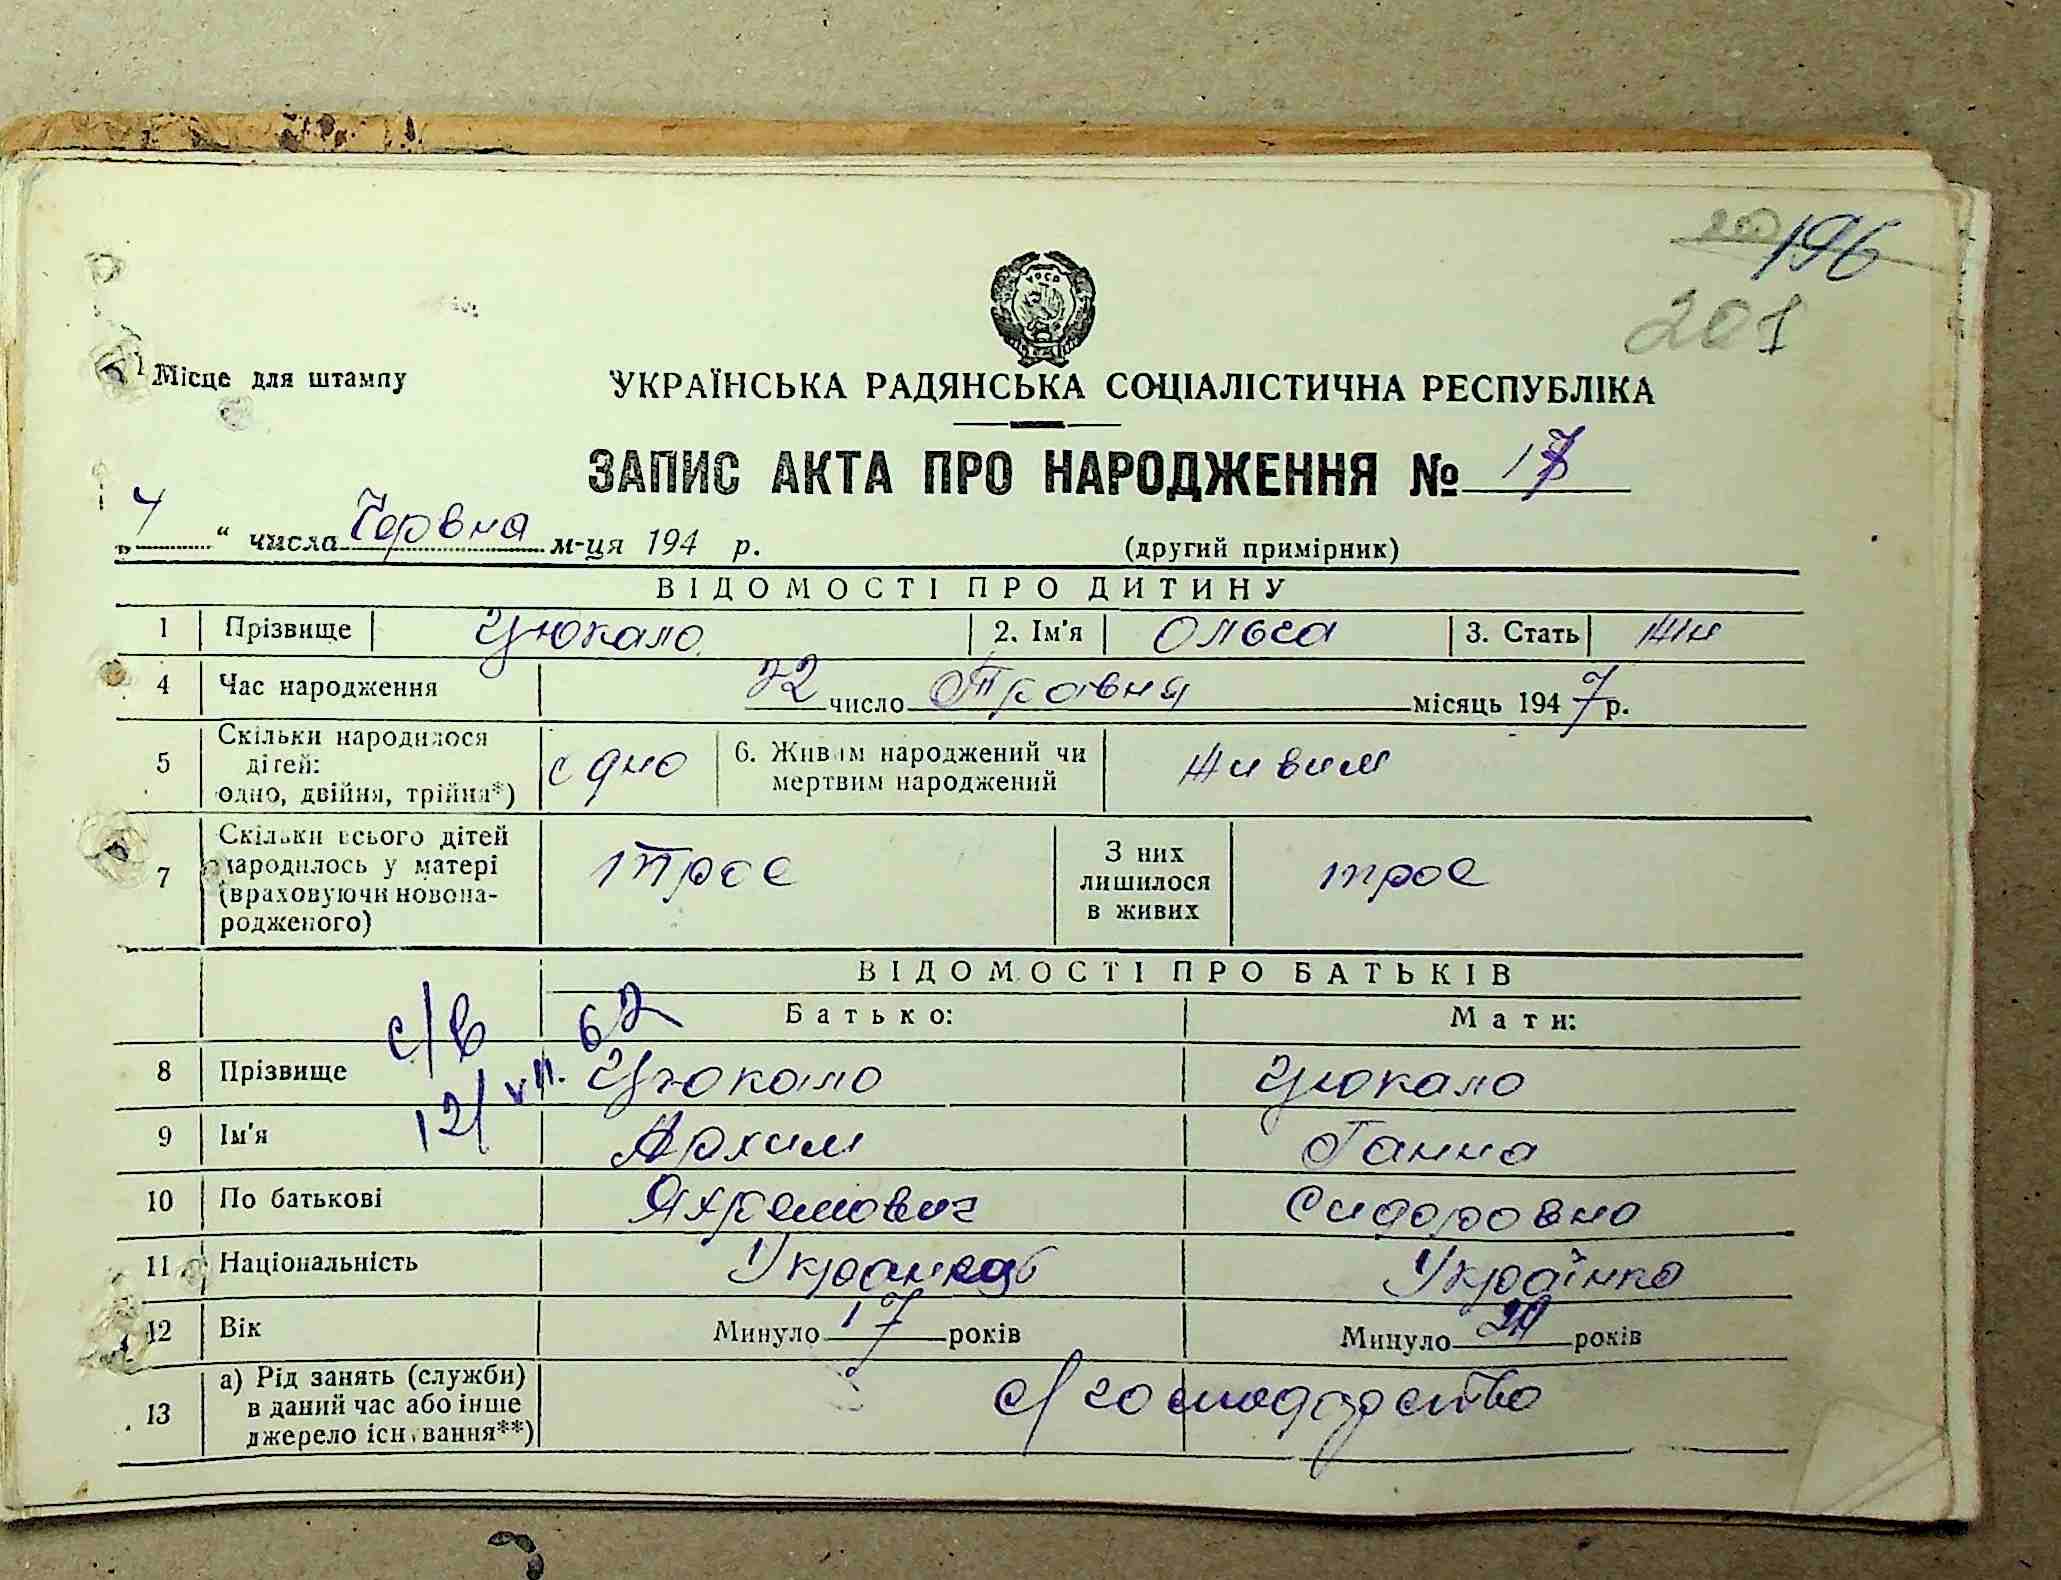 196
201
Місце для штампу
УКРАЇНСЬКА РАДЯНСЬКА СОЦІАЛІСТИЧНА РЕСПУБЛІКА
ЗАПИС АКТА ПРО НАРОДЖЕННЯ № 17
„ 4 “ числа Червня м-ця 194 р. (другий примірник)
ВІДОМОСТІ ПРО ДИТИНУ
1 Прізвище Цюкало 2. Ім'я Ольга 3. Стать жін
4 Час народження 22 число Травня місяць 1947 р.
5 Скільки народилося дітей: одно, двійня, трійня*) одно 6. Живим народжений чи мертвим народжений живим
7 Скільки всього дітей народилось у матері (враховуючи новонародженого) троє З них лишилося в живих троє
ВІДОМОСТІ ПРО БАТЬКІВ
Батько: Мати:
с/в 62
12/VII.
8 Прізвище Цюкало Цюкало
9 Ім'я Архим Ганна
10 По батькові Яхремович Сидоровна
11 Національність Українець Українка
12 Вік Минуло 17 років Минуло років
13 а) Рід занять (служби) в даний час або інше джерело існування**) с/господарство